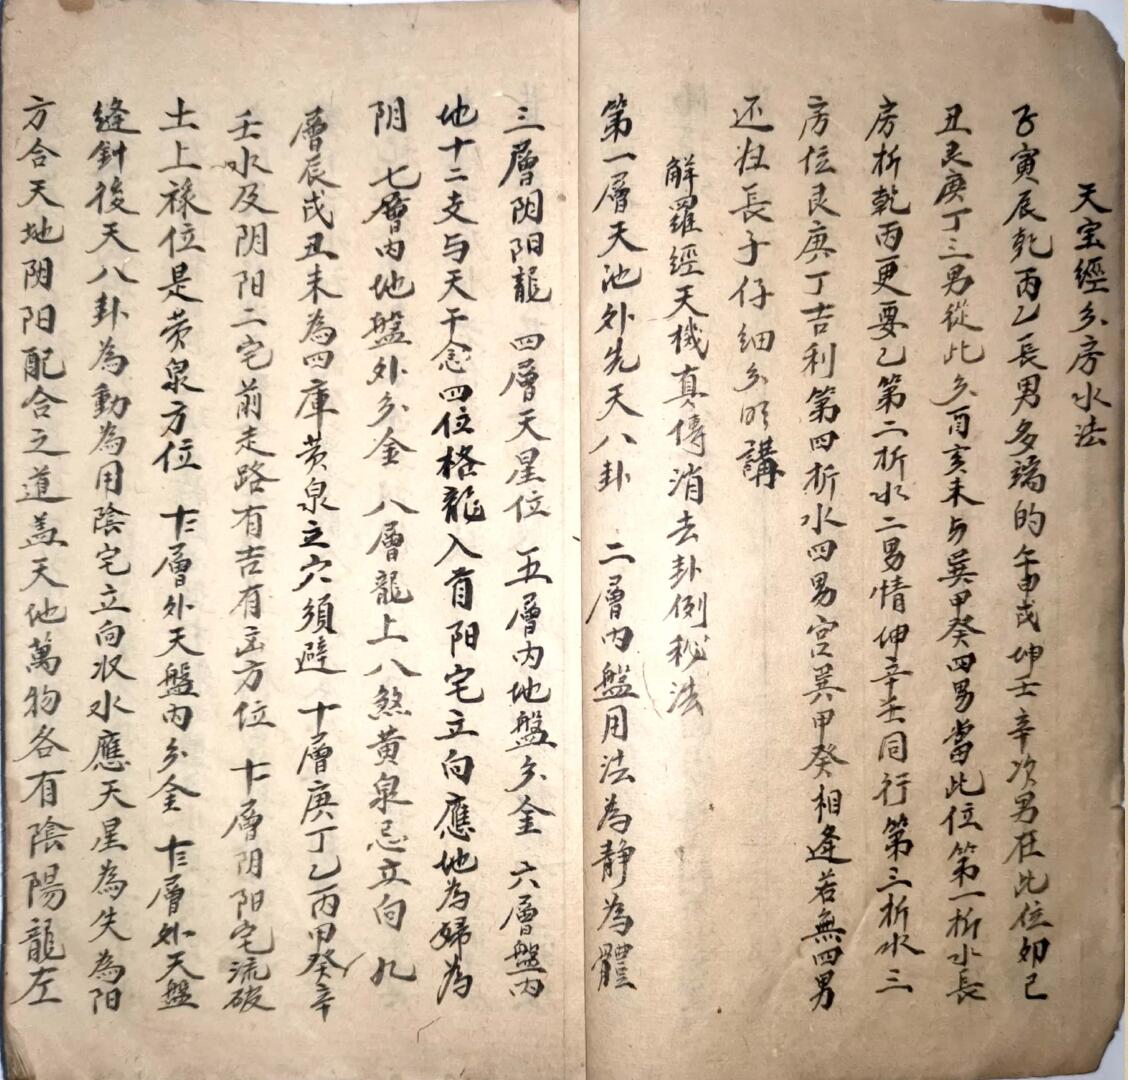 天宝經分房水法
子寅辰乾丙乙長男多端的午申戌坤壬辛次男在此位卯巳
丑艮庚丁三男從此分酉亥未与巽甲癸四男當此位第一折水長
房折乾丙更要乙第二折水二男情坤辛壬同行第三折水三
房位艮庚丁吉利第四折水四男宫巽甲癸相逢若無四男
还归長子仔細分明講
解羅經天機真傳消去卦例秘法
第一層天池外先天八卦 二層内盤用法為静為體
三層阴阳龍 四層天星位 五層内地盤分金 六層盤内
地十二支与天干念四位格龍入首阳宅立向應地為婦為
阴 七層内地盤外分金 八層龍上八煞黄泉忌立向 九
層辰戌丑未為四庫黄泉之穴須避 十層庚丁乙丙甲癸辛
壬水及阴阳二宅前走路有吉有凶方位 十一層阴阳宅流破
土上禄位是黄泉方位 十二層外天盤内分金 十三層外天盤
縫針後天八卦為動為用陰宅立向收水應天星為夫為阳
方合天地阴阳配合之道盖天地萬物各有陰陽龍左